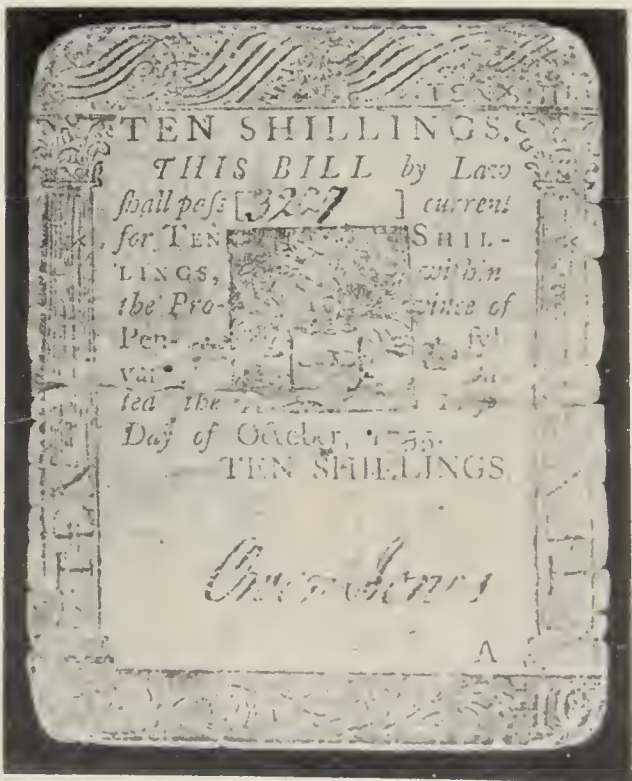 TEN SHILLINGS.
THIS BILL by Law
ſhall paſs [3227] current
for TEN SHIL-
LINGS, within
the Pro- vince of
Pen- ſyl
va
ted the
Day of October, 1755.
TEN SHILLINGS
Owen Jones
A